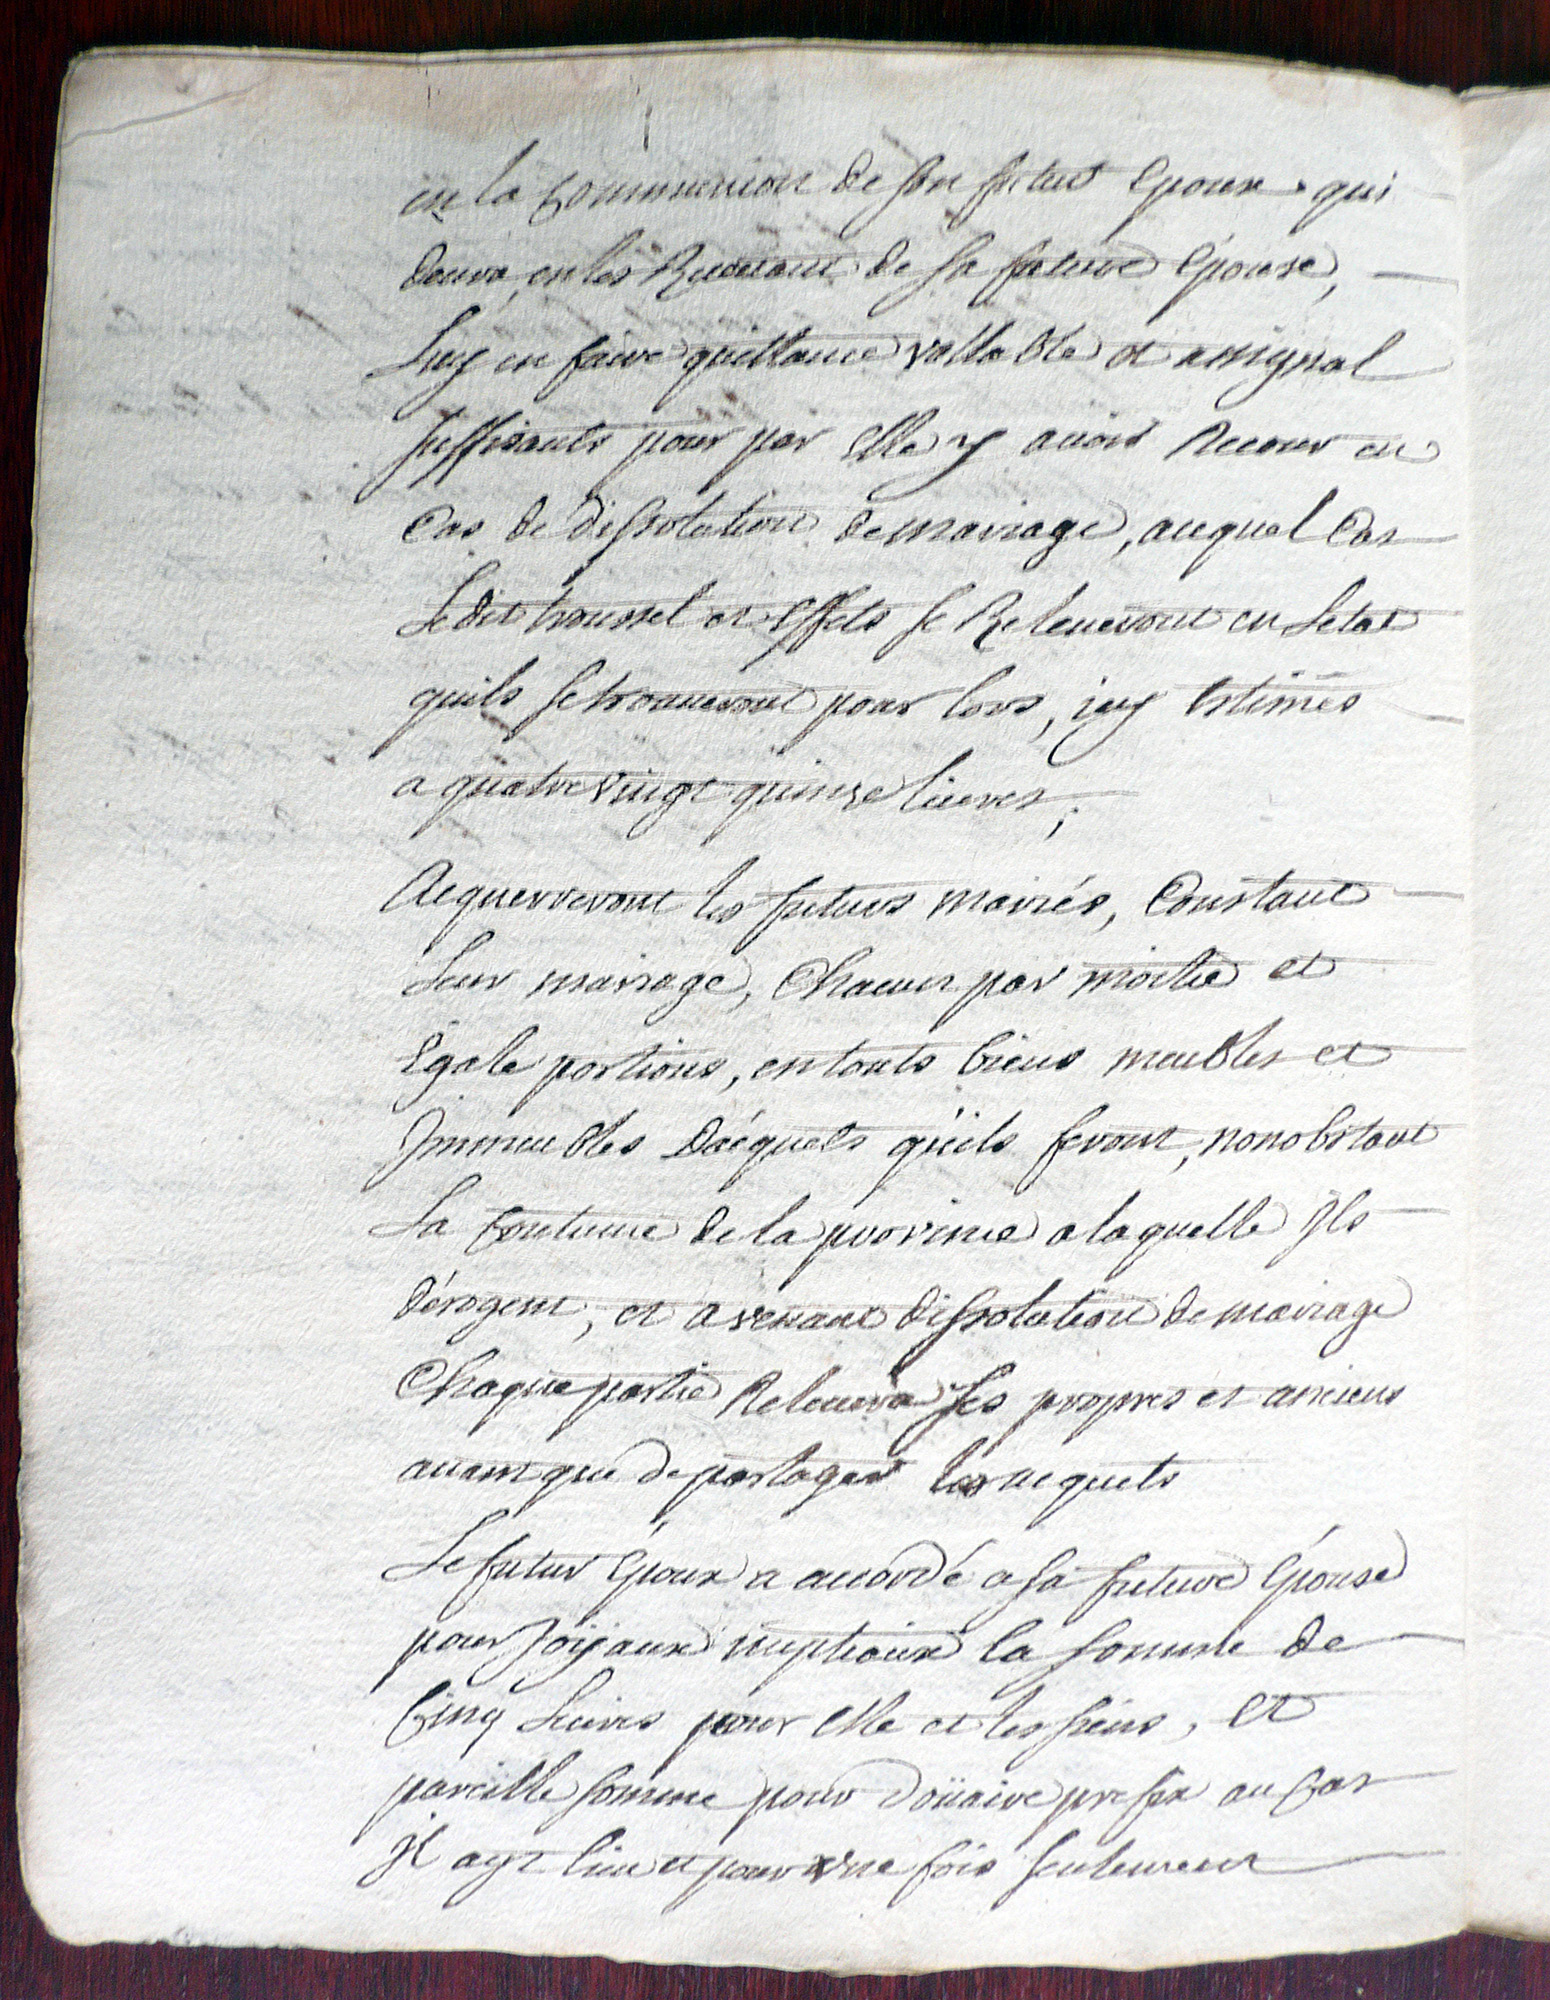 en la Communion de son futur Epoux qui
devra, en les Recevant de sa future Epouse,
Luy en faire quittance vallable et assignal
suffisants pour par Elle y avoir Recour en
Cas de dissolution de mariage, auquel Cas
Ledit troussel et Effets se Releveront en Letat
quils se trouveront pour lors, icy Estimés
a quatre vingt quinze livres;
Acquerreront les futurs mariés, Constant
Leur mariage, Chacun par moitié et
Egale portions, en touts biens meubles et
Immeubles D'acquets qu'ils feront, nonobstant
La Coutume de la province a laquelle Ils
dérogent; et avenant dissolution de mariage
Chaque partie Relevera ses propres et anciens
avant que de partager les acquets
Le futur Epoux a accordé a sa future Epouse
pour Joÿaux nuptiaux la somme de
Cinq Livres pour elle et les siens, et
pareille somme pour Doüaire prefix au Cas
Il ayt lieu et pour une fois seulement